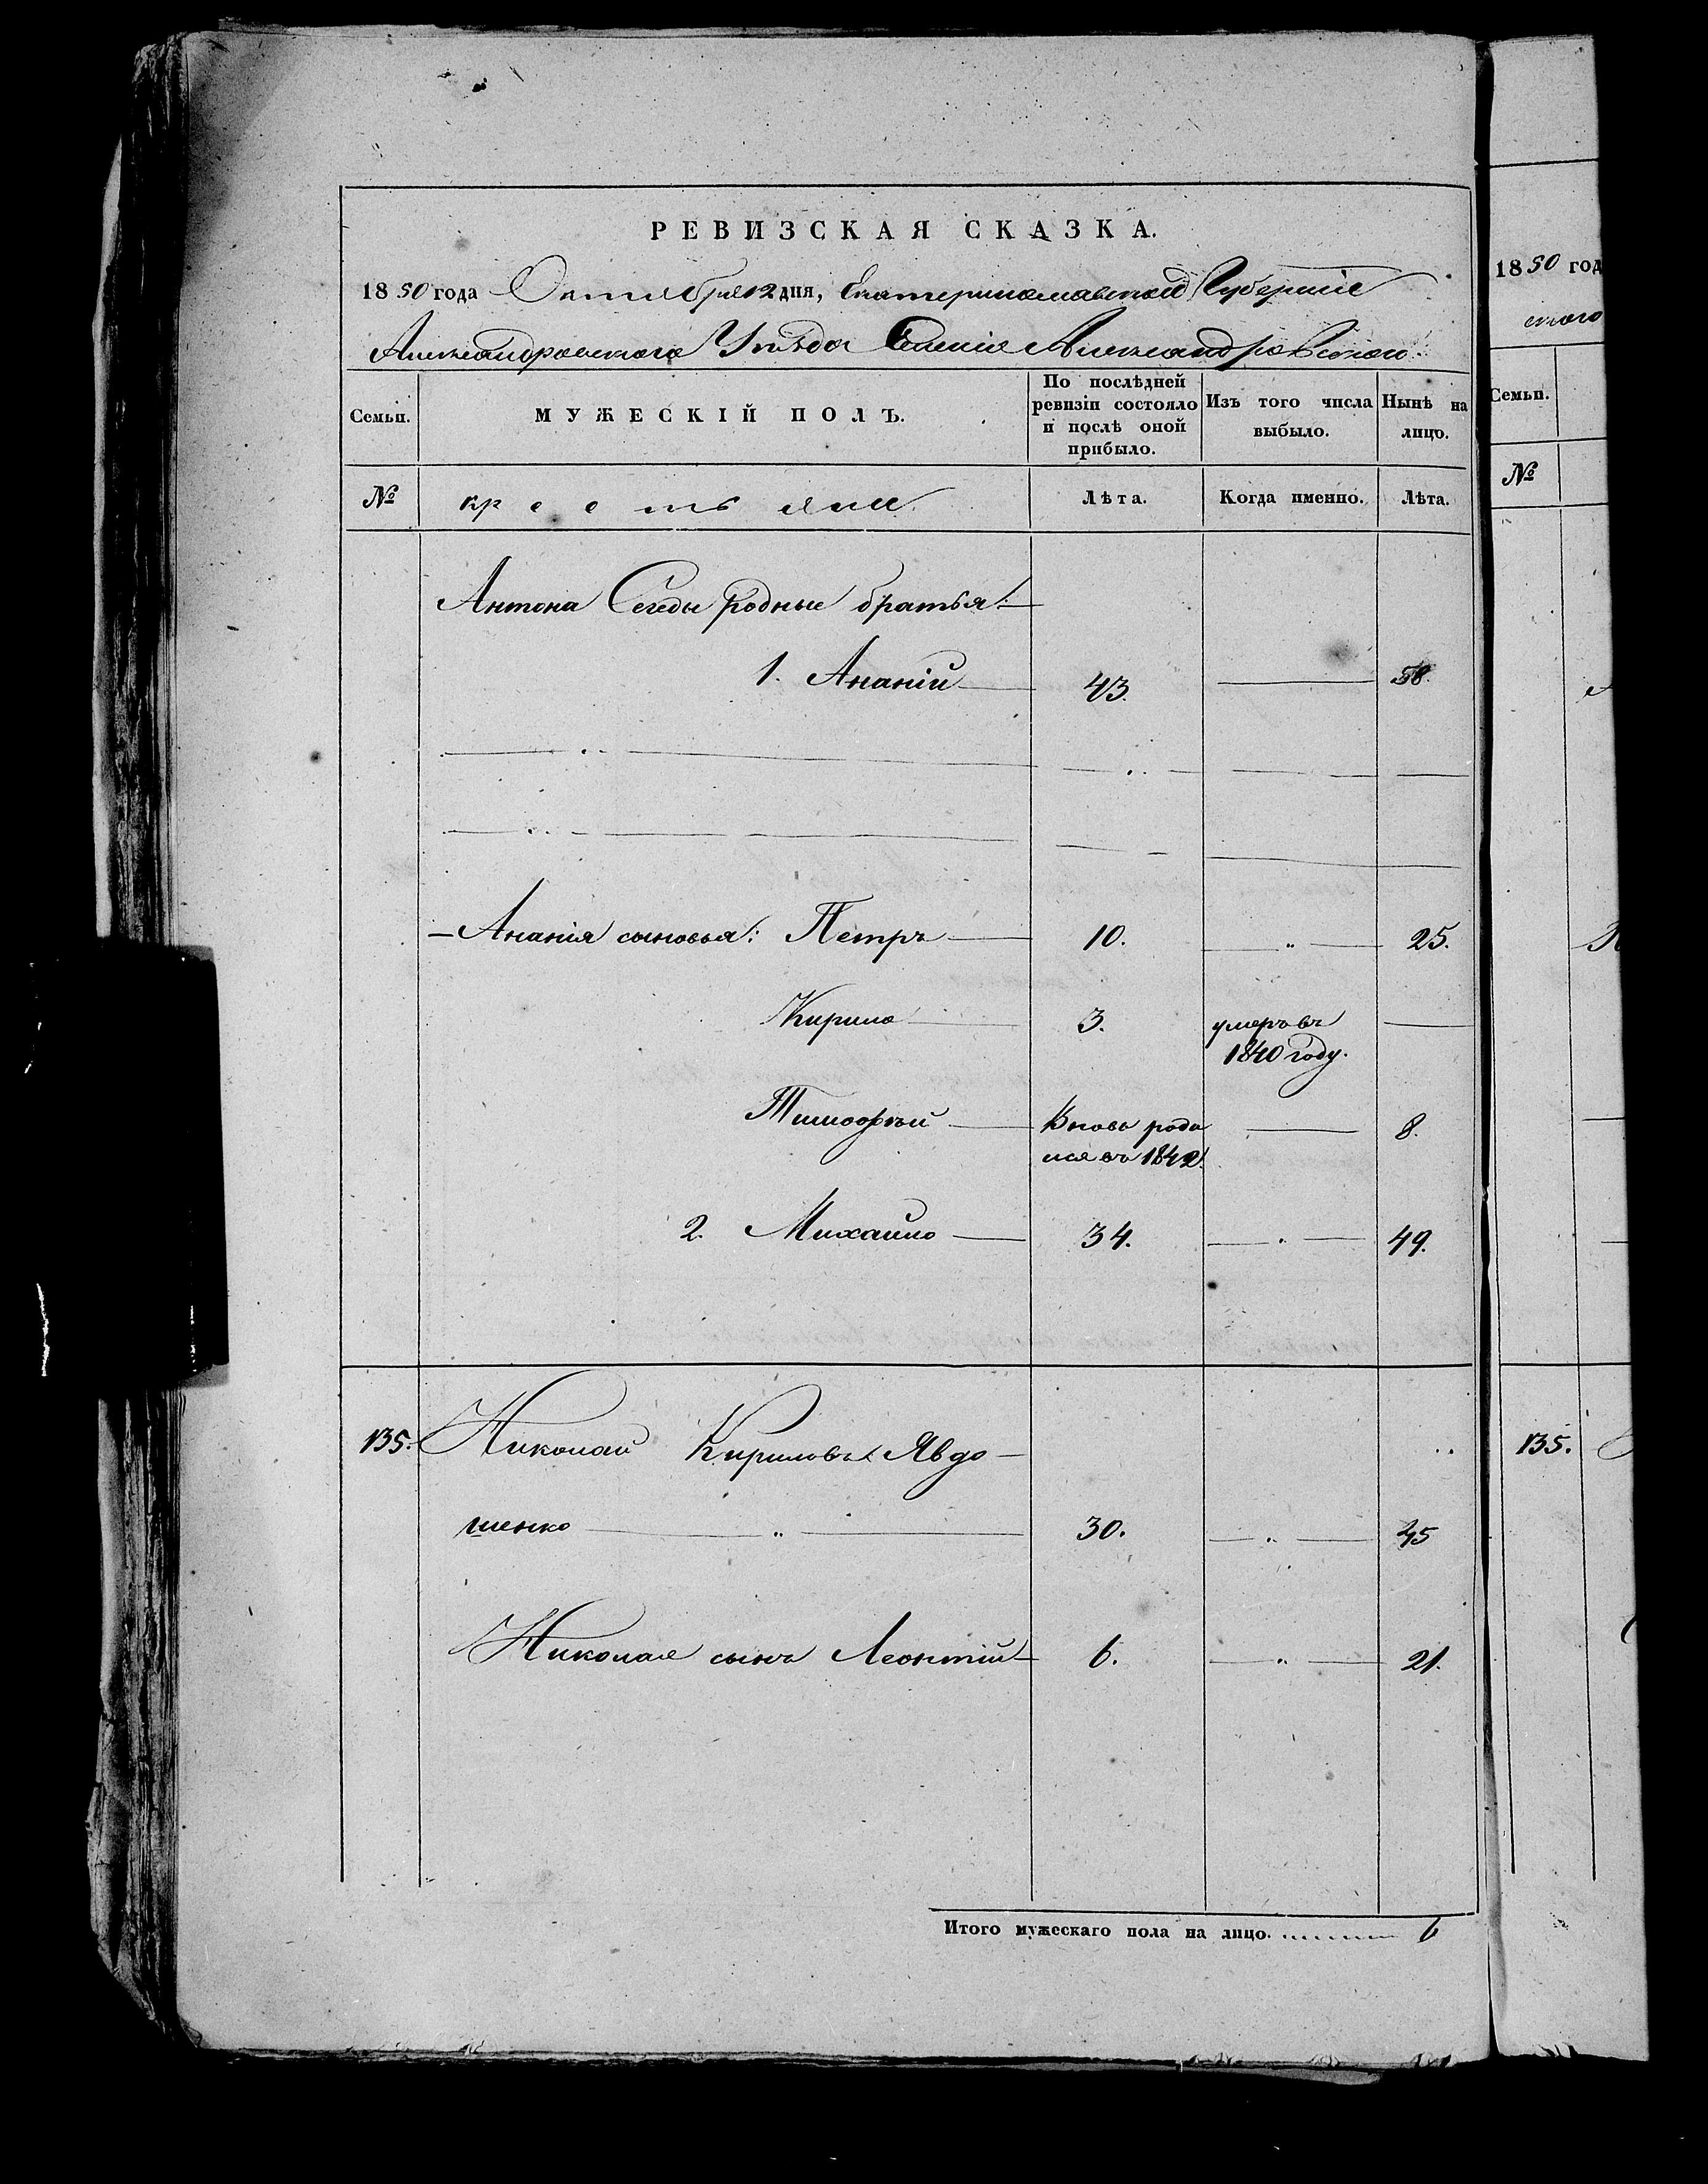 РЕВИЗСКАЯ СКАЗКА.
1850 года Октября 12 дня, Екатеринославской Губерніи
Александровского Уѣзда Селенія Александровского
Семьи.
МУЖЕСКІЙ ПОЛЪ.
По послѣдней ревизіи состояло и послѣ оной прибыло.
Изъ того числа выбыло.
Нынѣ на лицо.
№ крестьяне Лѣта. Когда именно. Лѣта.
Антона Сегеды родные братья:
1. Ананій 43. 58.
Ананія сыновья: Петръ 10. 25.
Кирило 3. умеръ въ
1840 году.
Тимофѣй Вновь роди 8.
лся въ 1842
2. Михайло 34. 49.
135. Николай Кириловъ Явдо
шенко 30. 45
Николая сынъ Леонтій 6. 21.
Итого мужескаго пола на лицо. 6
1850 год
ского
Семьи.
№
135.